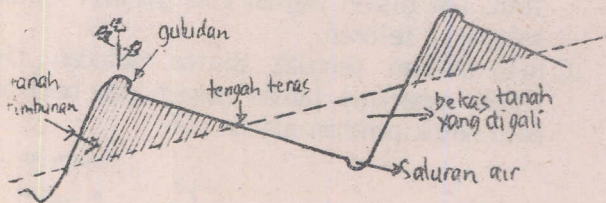 guludan
tanah
timbunan
tengah teras
bekas tanah
yang digali
saluran air